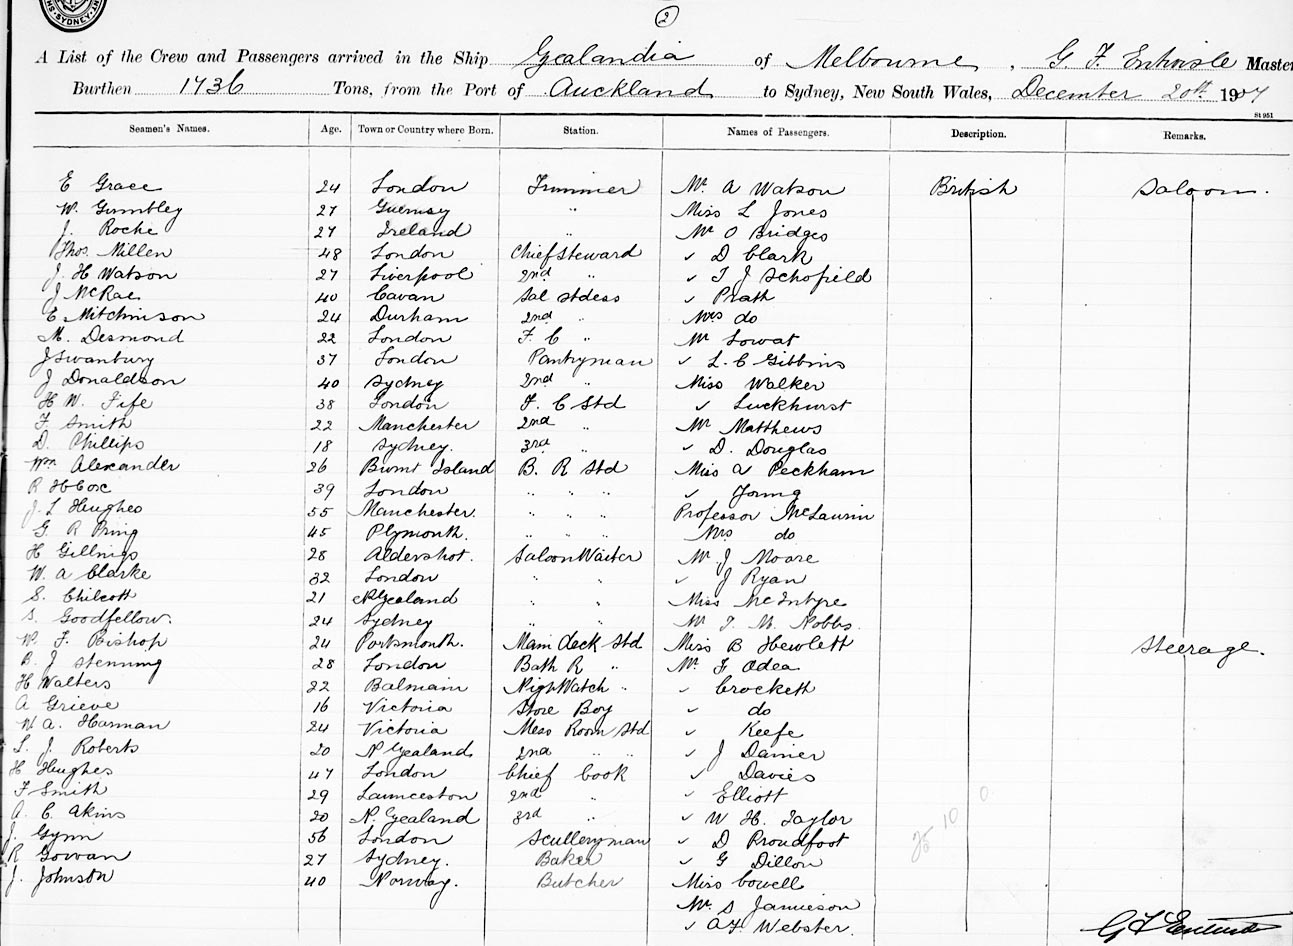 SYDNEY
2
A List of the Crew and Passengers arrived in the Ship Zealandia of Melbourne, G. F. Entwisle Master
Burthen 1736 Tons, from the Port of Auckland to Sydney, New South Wales, December 20th 1907
St 951
Seamen's Names. Age. Town or Country where Born. Station. Names of Passengers. Description. Remarks.
E Grace 24 London Trimmer Mr. A Watson British Saloon.
W. Gumbley 27 Guernsey " Miss L Jones
J. Roche 27 Ireland " Mr O Bridges
Thos. Millen 48 London Chief Steward " D Clark
J. H Watson 27 Liverpool 2nd " " T J Schofield
J McRae 40 Cavan Sal Stdess " Prath
E Mitchinson 24 Durham 2nd " Mrs do
M. Desmond 22 London F. C " Mr Lowat
J Swanbury 37 London Pantryman " L. C Gibbins
J Donaldson 40 Sydney 2nd " Miss Walker
H W. Fife 38 London F. C Std " Luckhurst
F. Smith 22 Manchester 2nd " Mr Matthews
D. Phillips 18 Sydney. 3rd " " D. Douglas
Wm Alexander 26 Burnt Island B. R Std Miss A Peckham
R H Cox 39 London " " " " Young
J. L Hughes 55 Manchester. " " " Professor McLaurin
G. R Pring 45 Plymouth. " " " Mrs do
H Gillings 28 Aldershot. Saloon Waiter Mr J Moore
W. A Clarke 32 London " " " J Ryan
S. Chilcott 21 N Zealand " " Miss McIntyre
S. Goodfellow. 24 Sydney " " Mr T. M. Nobbs.
W. F. Bishop 24 Portsmouth. Main deck Std Miss B Hewlett Steerage.
B. J Stenning 28 London Bath R " Mr. F Odea
H Walters 22 Balmain Nigh Watch " " Crockett
A Grieve 16 Victoria Store Boy " do
W A. Harman 24 Victoria Mess Room Std " Keefe
L. J. Roberts 20 N Zealand 2nd " " " J Damer
H Hughes 47 London Chief Cook " Davies
F Smith 29 Launceston 2nd " " Elliott
A. C. Akins 20 N. Zealand 3rd " " W H. Taylor
J. Gynn 56 London Scullery man " D Proudfoot
R Gowan 27 Sydney. Baker " G Dillon
J. Johnson 40 Norway. Butcher Miss Cowell
Mr. S Jamieson
" A. F. Webster.